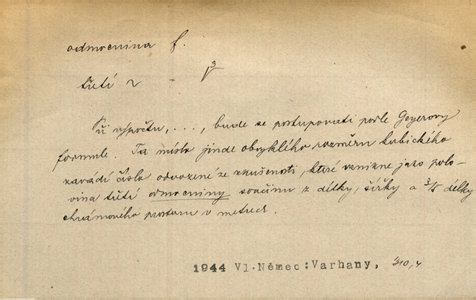 odmocnina f.
třetí ~ - ∛
Při výpočtu, ..., bude se postupovati podle Geyerovy
formule. Ta místo jinde obvyklého rozměru kubického
zavádí číslo odvozené ze zkušenosti, které vznikne jako polo-
vina třetí odmocniny součinu z délky, šířky a 3/5 délky
chrámového prostoru v metrech.
1944 Vl.Němec:Varhany, 310,4